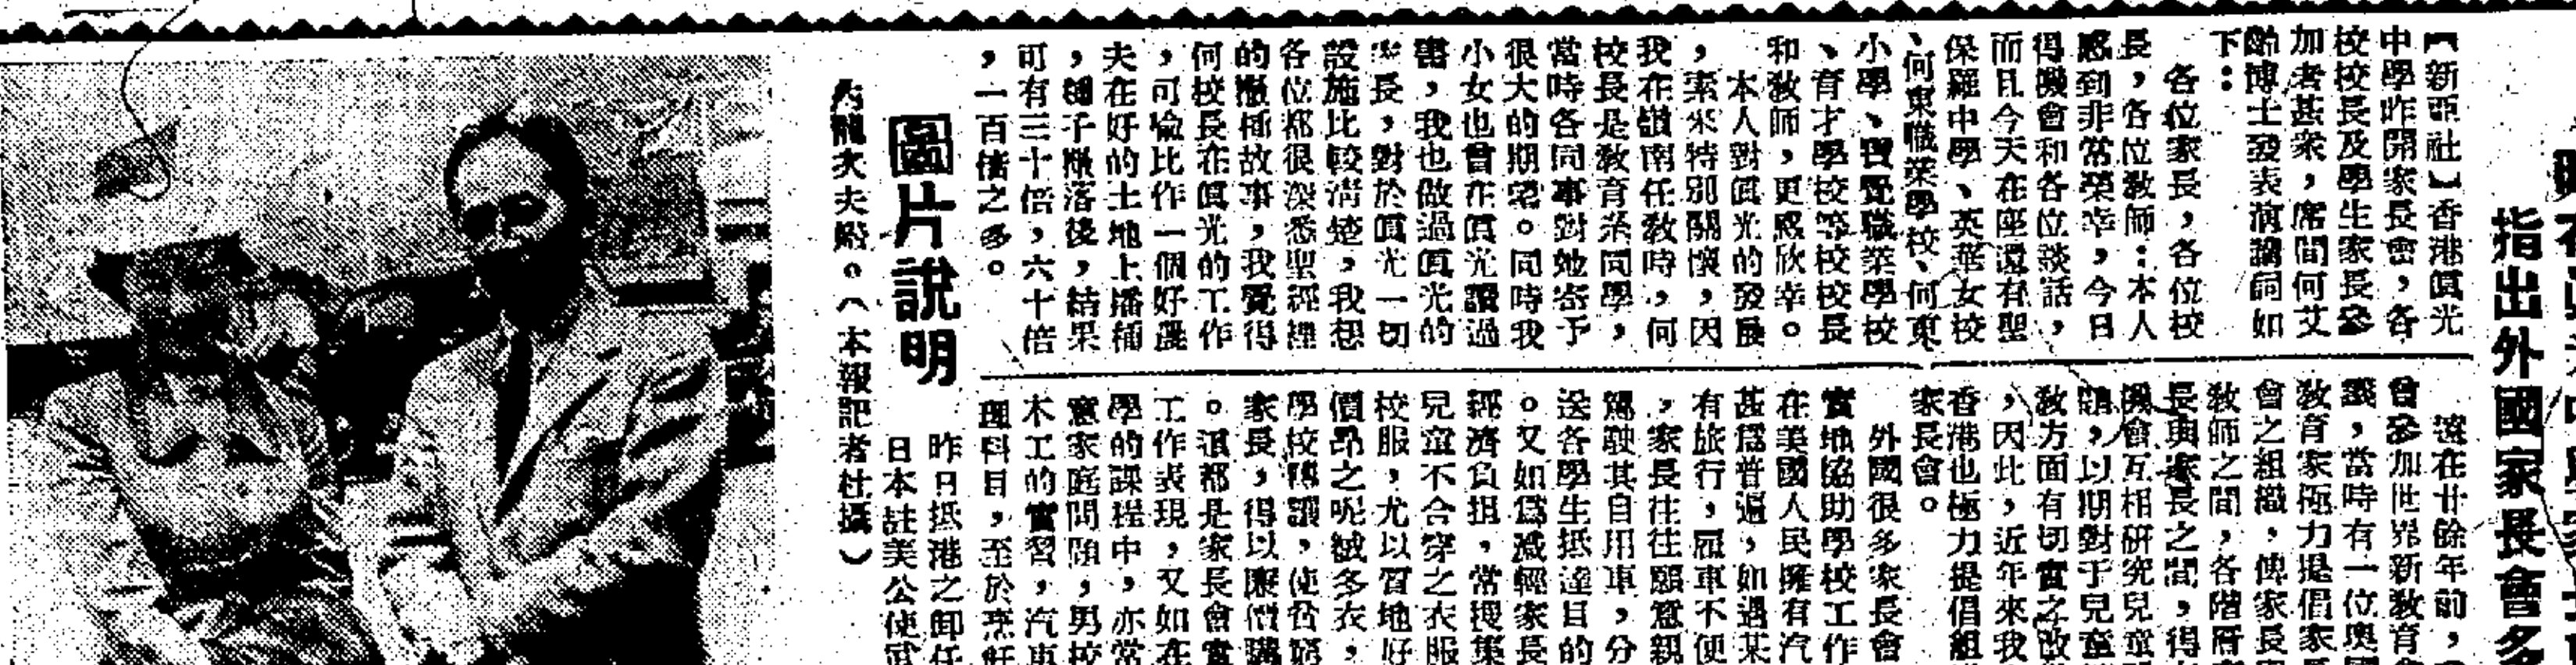 指出外國家長會多
【新亞社】香港眞光
中學昨開家長會，各
校校長及學生家長參
加者甚衆，席間何艾
齡博士發表演講詞如
下：
各位家長，各位校
長，各位敎師：本人
感到非常榮幸，今日
得機會和各位談話，
而且今天在座還有聖
保羅中學、英華女校
、何東職業學校、何東
小學、寶覺職業學校
、育才學校等校校長
和敎師，更感欣幸。
本人對眞光的發展
，素來特別關懷，因
我在嶺南任敎時，何
校長是敎育系同學，
當時各同事對她寄予
很大的期望。同時我
小女也曾在眞光讀過
書，我也做過眞光的
家長，對於眞光一切
設施比較清楚，我想
各位都很深悉聖經裡
的撒種故事，我覺得
何校長在眞光的工作
，可喩比作一個好農
夫在好的土地上播種
，種子撒落後，結果
可有三十倍，六十倍
，一百倍之多。
遠在廿餘年前，
曾參加世界新敎育
議，當時有一位奧國
敎育家極力提倡家
會之組織，俾家長
敎師之間，各階層
長與家長之間，得
機會互相硏究兒童
題，以期對于兒童
敎方面有切實之改
，因此，近年來我
香港也極力提倡組
家長會。
外國很多家長會
實地協助學校工作
在美國人民擁有汽
甚爲普遍，如遇某
有旅行，雇車不便
，家長往往願意親
駕駛其自用車，分
送各學生抵達目的
。又如爲減輕家長
經濟負担，常搜集
兒童不合穿之衣服
校服，尤以質地好
價昂之呢絨多衣，
學校轉讓，使貧窮
家長，得以廉價購
。這都是家長會實
工作表現，又如在
學的課程中，亦常
意家庭問題，男校
木工的實習，汽車
理科目，至於烹飪
圖片說明
昨日抵港之卸任
日本註美公使武
內龍次夫婦。（本報記者杜攝）